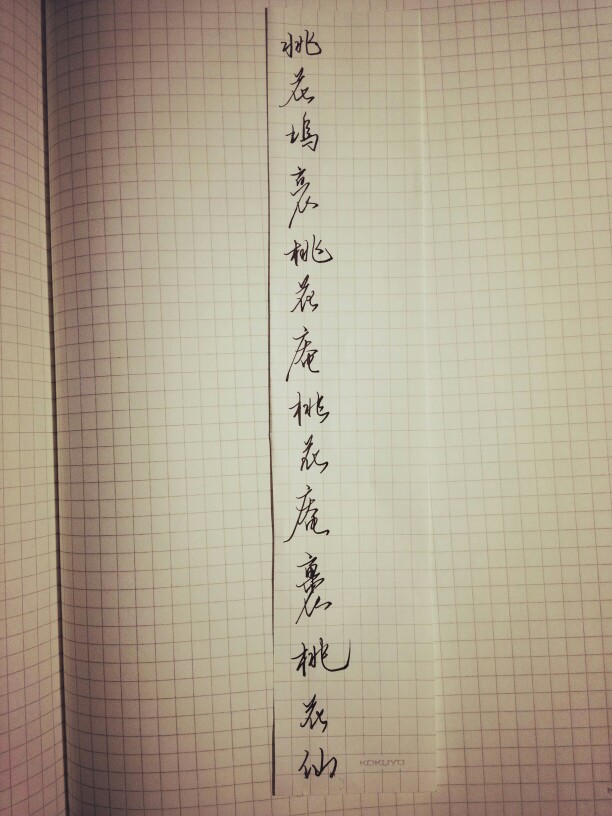 桃花塢裏桃花庵桃花庵裏桃花仙
KOKUYO